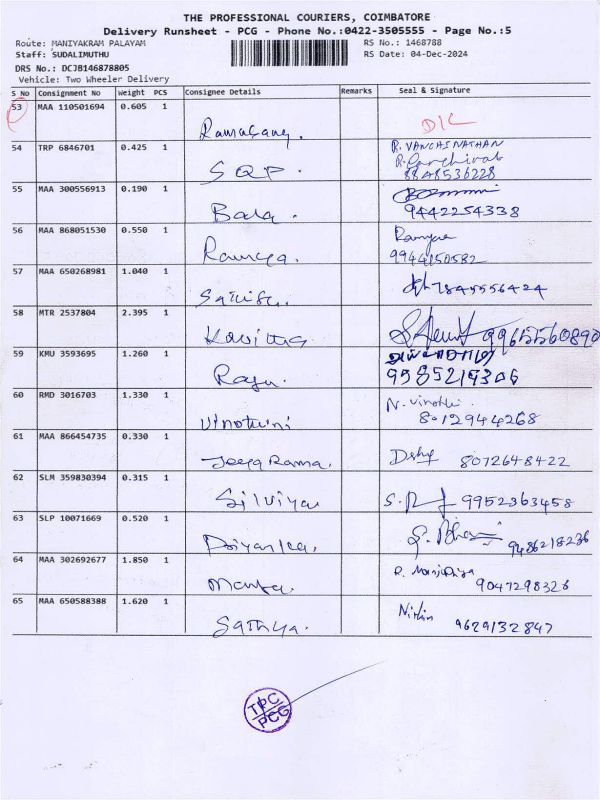 THE PROFESSIONAL COURIERS, COIMBATORE
Delivery Runsheet - PCG - Phone No.:0422-3505555 - Page No.:5
Route: MANIYAKRAM PALAYAM RS No.: 1468788
Staff: SUDALIMUTHU RS Date: 04-Dec-2024
DRS No.: DCJB146878805
Vehicle: Two Wheeler Delivery
S No Consignment No Weight PCS Consignee Details Remarks Seal & Signature
53 MAA 110501694 0.605 1
D/L
54 TRP 6846701 0.425 1 R. VANCHINATHAN
SQP. 8848536228
55 MAA 300556913 0.190 1
Bala. 9442254338
56 MAA 868051530 0.550 1 Ramya
Ramya. 9944150582
57 MAA 650268981 1.040 1 7845556424
58 MTR 2537804 2.395 1
Kavitha 9965560890
59 KMU 3593695 1.260 1
Raju. 9585219306
60 RMD 3016703 1.330 1 N. Vinothi
Vinothini 8012944268
61 MAA 866454735 0.330 1
Jeeya Rama. 8072648422
62 SLM 359830394 0.315 1
Silviya 9952363458
63 SLP 10071669 0.520 1
Priyanka. 9486218236
64 MAA 302692677 1.850 1
9047298328
65 MAA 650588388 1.620 1 Nithin
Sathya. 9629132847
TPC
PCG